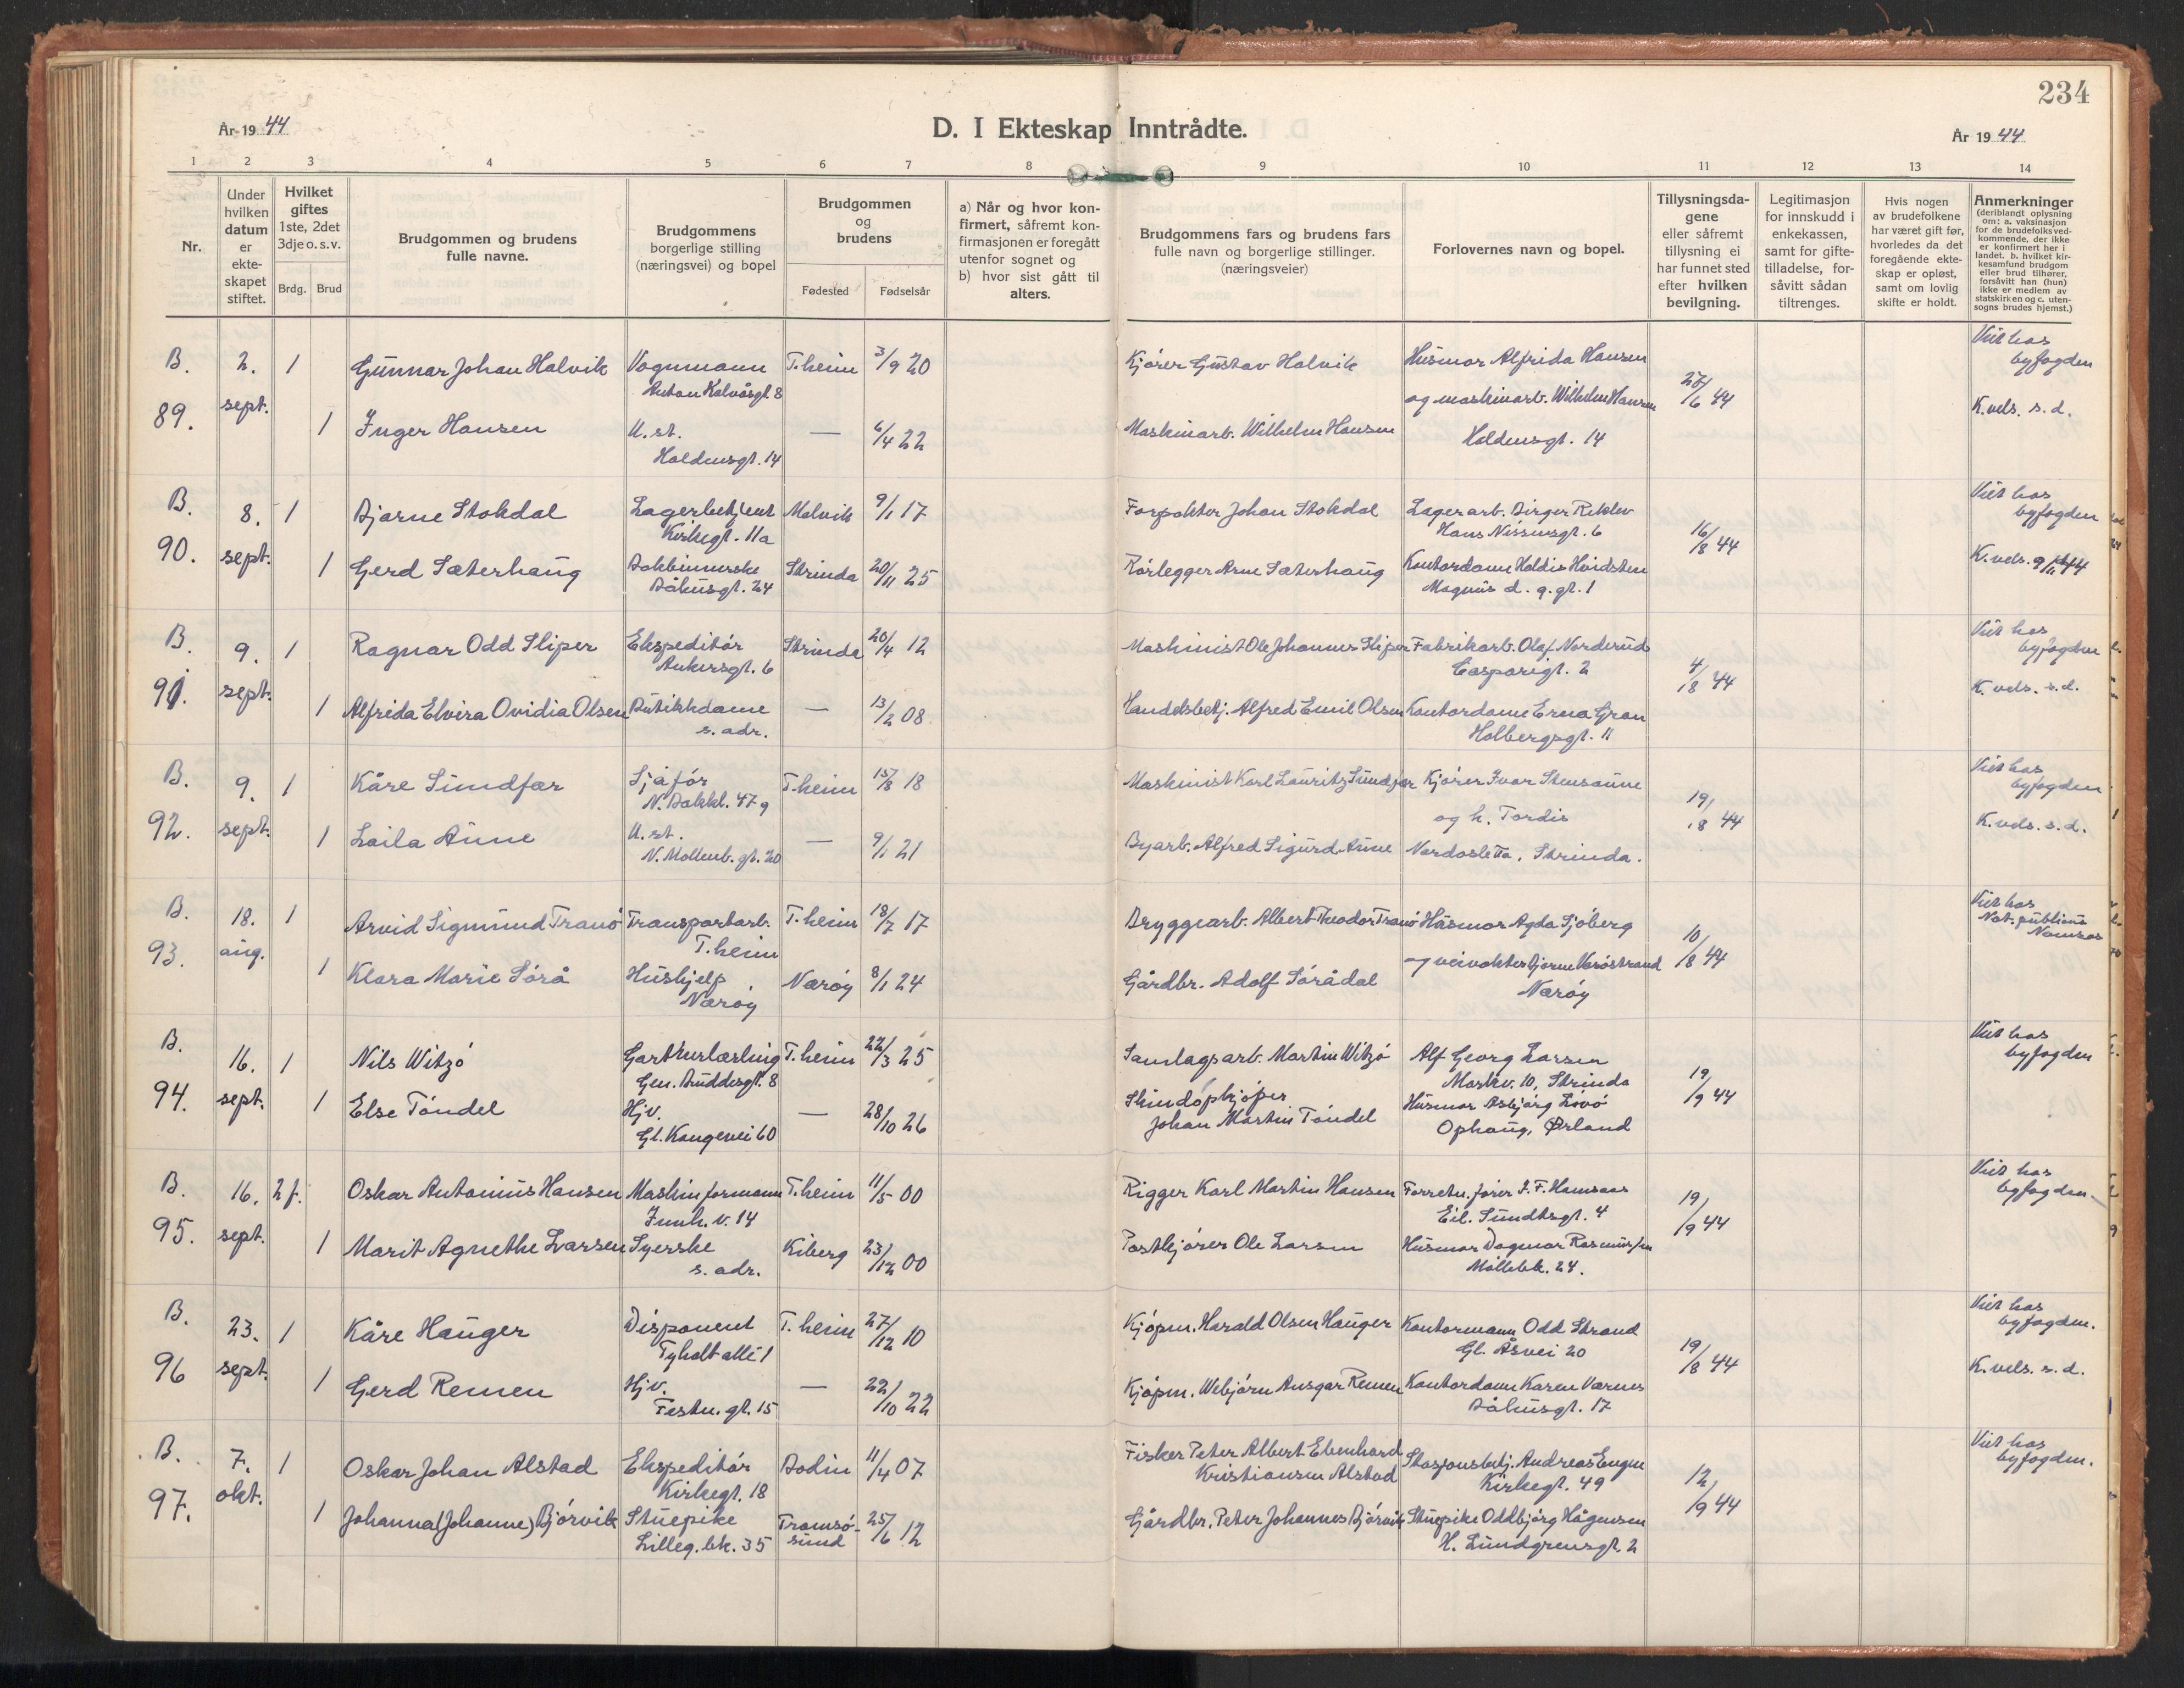 234
År 19 44
D. I Ekteskap Inntrådte.
År 19 44
1 2 3 4 5 6 7 8 9 10 11 12 13 14
Nr.
Under hvilken datum er ekte-skapet stiftet.
Hvilket giftes 1ste, 2det 3dje o. s. v.
Brdg. Brud
Brudgommen og brudens fulle navne.
Brudgommens borgerlige stilling (næringsvei) og bopel
Brudgommen og brudens
Fødested Fødselsår
a) Når og hvor kon-firmert, såfremt kon-firmasjonen er foregått utenfor sognet og
b) hvor sist gått til alters.
Brudgommens fars og brudens fars fulle navn og borgerlige stillinger. (næringsveier)
Forlovernes navn og bopel.
Tillysningsda-gene eller såfremt tillysning ei har funnet sted efter hvilken bevilgning.
Legitimasjon for innskudd i enkekassen, samt for gifte-tilladelse, for-såvitt sådan tiltrenges.
Hvis nogen av brudefolkene har været gift før, hvorledes da det foregående ekte-skap er opløst, samt om lovlig skifte er holdt.
Anmerkninger (deriblandt oplysning om: a. vaksinasjon for de brudefolks ved-kommende, der ikke er konfirmert her i landet. b. hvilket kir-kesamfund brudgom eller brud tilhører, forsåvitt han (hun) ikke er medlem av statskirken og c. uten-sogns brudes hjemst.)
B. 2. 1 Gunnar Johan Halvik Vognmann T.heim 3/9 20 Kjører Gustav Halvik Husmor Alfrida Hansen Viet hos byfogden
Anton Kalvåsgt. 8 og maskinarb. Wilhelm Hansen 27/6 44
89. sept. 1 Inger Hansen U. st. — 6/4 22 Maskinarb. Wilhelm Hansen Haldensgt. 14 K.vels. s. d.
Haldensgt. 14
B. 8. 1 Bjarne Stokdal Lagerbetjent Malvik 9/1 17 Forpakter Johan Stokdal Lagerarb. Birger Reklev Viet hos byfogden
Kirkegt. 11a Hans Nissensgt. 6 16/8 44
90. sept. 1 Gerd Sæterhaug Bokbinnerske Strinda 20/11 25 Rørlegger Arne Sæterhaug Kontordame Haldis Hindsten K.vels. 9/11 44
Båhusgt. 24 Magnus d. g. gt. 1
B. 9. 1 Ragnar Odd Sliper Ekspeditør Strinda 20/4 12 Maskinist Ole Johannes Sliper Fabrikarb. Olaf Norderud Viet hos byfogden
Ankersgt. 6 Casparigt. 2 4/8 44
91. sept. 1 Alfrida Elvira Ovidia Olsen Butikkdame — 13/2 08 Handelsbetj. Alfred Emil Olsen Kontordame Erna Gran K. vels. s. d.
s. adr. Holbergsgt. 11
B. 9. 1 Kåre Sundfær Sjåfør T.heim 15/8 18 Maskinist Karl Lauritz Sundfær Kjører Ivar Stensaune Viet hos byfogden
N. Bakkl. 47 g og h. Tordis 19/8 44
92. sept. 1 Laila Aune U. st. — 9/1 21 Byarb. Alfred Sigurd Aune Nardosletta, Strinda. K.vels. s. d.
N. Mollenb. gt. 20
B. 18. 1 Arvid Sigmund Tranø Transportarb. T.heim 18/7 17 Bryggearb. Albert Theodor Tranø Husmor Agda Sjøberg Viet hos Not. publicus Namsos
T.heim og veivokter Bjarne Værøstrand 10/8 44
93. aug. 1 Klara Marie Sørå Hushjelp Nærøy 8/1 24 Gårdbr. Adolf Sørådal Nærøy
Nærøy
B. 16. 1 Nils Witzø Gartnerlærling T.heim 22/3 25 Samlagsarb. Martin Witzø Alf Georg Larsen Viet hos byfogden
Gen. Buddesgt. 8 Markv. 10, Strinda 19/9 44
94. sept. 1 Else Tøndel Hjv. — 28/10 26 Skindopkjøper Johan Martin Tøndel Husmor Asbjørg Lovø
Gl. Kongevei 60 Ophaug, Ørland
B. 16. 2 f. Oskar Antonius Hansen Maskinformann T.heim 11/5 00 Rigger Karl Martin Hansen Forretn.fører J. F. Hamsaas Viet hos byfogden
Innh. v. 14 Eil. Sundtsgt. 4 19/9 44
95. sept. 1 Marit Agnethe Larsen Syerske Kiberg 23/12 00 Postkjører Ole Larsen Husmor Dagmar Rasmussen
s. adr. Møllebk. 24.
B. 23. 1 Kåre Hauger Disponent T.heim 27/12 10 Kjøpm. Harald Olsen Hauger Kontormann Odd Strand Viet hos byfogden.
Tyholt allé 1 Gl. Åsvei 20 19/8 44
96 sept. 1 Gerd Remen Hjv. — 22/10 22 Kjøpm. Webjørn Ansgar Remen Kontordame Karen Værnes K.vels. s. d.
Festn. gt. 15 Båhusgt. 17
B. 7. 1 Oskar Johan Alstad Ekspeditør Bodin 11/4 07 Fisker Peter Albert Ebenhard Kristiansen Alstad Stasjonsbetj. Andreas Engen Viet hos byfogden.
Kirkegt. 18 Kirkegt. 49 12/9 44
97. okt. 1 Johanna (Johanne) Bjørvik Stuepike Tromsøsund 25/6 12 Gårdbr. Peter Johannes Bjørvik Stuepike Oddbjørg Hågensen
Lilleg. bk. 35 H. Lundgreensgt. 2